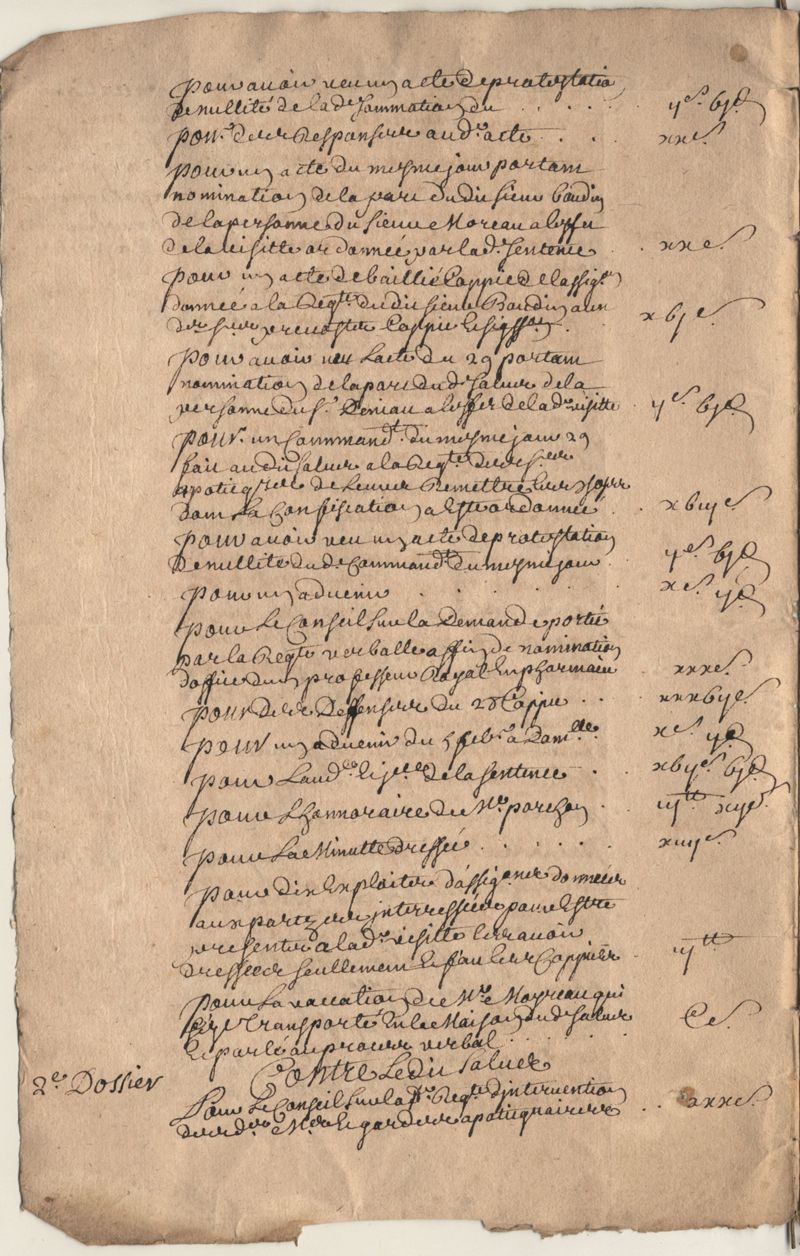 pour avoir veu un acte de protestation
de nullité de la d.e sommation du . . . . . ijs. vjd.
pour des Responses au d. acte . . . xxs.
pour un acte du mesme jour portant
nomination de la part dudit sieur baudin
de la personne du sieur Moreau a leffet
de la visitte ordonnée par la d. sentence . xxs.
pour un acte de baillié Coppie de lassig.on
donnée a la Req.te dudit sieur Baudin
Coppie . xvjs.
pour avoir veu lacte du 29 portant
nomination de la part du d. Saluer de la
personne du s.r a leffet de la d. visitte ijs. vjd.
pour un Command.t du mesme jour 29
fait audit Saluer a la Req.te desd. s.rs
apoticq.res de leur Remettre les
dont la Confiscation a esté ordonnée . xviijs.
pour avoir veu un acte de protestation
de nullité du d. Command.t du mesme jour ijs. vjd.
pour un advenir . . . . . xs. ijd.
pour le Conseil sur la Demande portée
par la Req.te verballe affin de nomination
doffice dun professeur Royal en pharmacie xxxs.
pour des Deffenses du 28 Coppie . . xxxvjs.
pour un advenir du 5 feb.r a . xs. ijd.
pour laud.ce de la sentence . xvijs. vjd.
pour lhonnoraire de M.e porchon . iij.tt xijs.
pour la Minutte dressée . . . . . xiijs.
pour dix Exploits dassig.ons données
aux partyes interressées pour Estre
presentes a la d. visitte les avoir
dressées seullement et fait les Coppies . iij.tt
pour la vaccation de M.e Moreau qui
sest transporté en la Maison dud. Saluer
et parlé au proces verbal . . . . . Cs.
Contre ledit Saluer
2.e Dossier
Pour le Conseil sur la Req.te dintervention
desd. M.es et gardes apoticquaires . . xxxs.